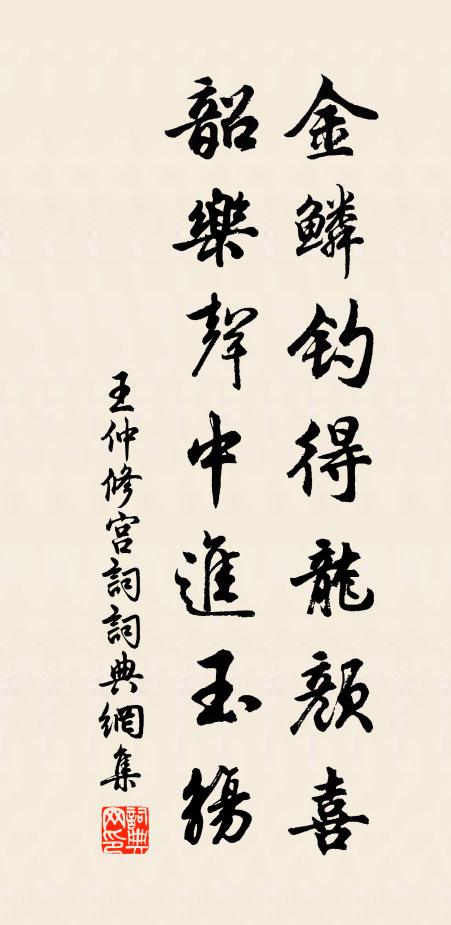 金鱗釣得龍顏喜
韶樂聲中進玉觴
王仲修宮詞詞典網集
詞典網印